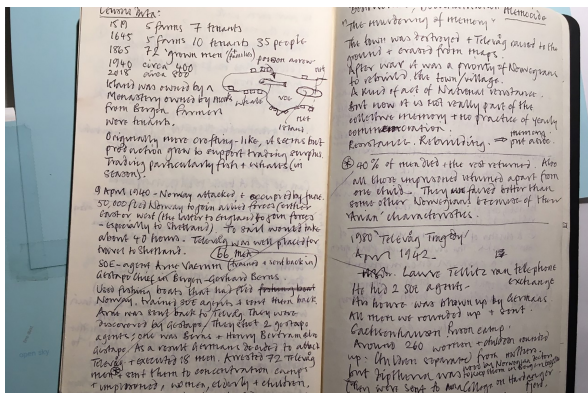 Census Data:
1519 5 farms 7 tenants
1645 5 farms 10 tenants 35 people
1865 72 grown men (families)
1940 circa 400
2018 circa 800
poison arrow
net
whale
voe
net
island
Island was owned by a
Monastery owned by monks
from Bergen. Farmers
were tenants.
Originally more crofting-like, it seems but
production grew to support trading surplus.
Trading particularly fish + whales (in
season).
9 April 1940 - Norway attacked + occupied by
50,000 fled Norway to join allied forces (either
East or West (the latter to England to join forces
- especially to Shetland). To sail would take
about 40 hours. Telavåg was well placed for
travel to Shetland.
66 men
SOE-agent Arne Vaerum (trained + sent back in)
Gestapo Chief in Bergen - Gerhard Berns.
Used fishing boats that had fled
Norway, trained SOE agents + sent them back.
Arne was sent back to Telavåg. They were
discovered by Gestapo. They shot 2 gestapo
agents; one was Berns + Henry Bertram
Gestapo. As a result Germans decided to attack
Telavåg + executed 18 men. Arrested 72 Telavåg
men + sent them to concentration camps
+ imprisoned, women, elderly + children.
Memocide
"The murdering of memory"
The town was destroyed + Telavåg razed to the
ground + erased from maps.
After war it was a priority of Norwegians
to rebuild the town/village.
A kind of act of National resistance.
But now it is not really part of the
collective memory + no practice of yearly
commemoration.
Resistance. Rebuilding. → memory put aside.
40% of men died + the rest returned. Also
all those imprisoned returned apart from
one child. They fared better than
some other Norwegians because of their
'Arian' characteristics.
1980 'Telavåg Tragedy'
April 1942.
Lauritz Tellitz ran telephone
exchange
He hid 2 SOE agents -
His house was blown up by Germans
All men we rounded up + sent
Sachsenhausen Prison camp.
Around 260 women + children rounded
up. Children separated from mothers
but diptheria was
They were sent to a College on Hardanger
fjord.